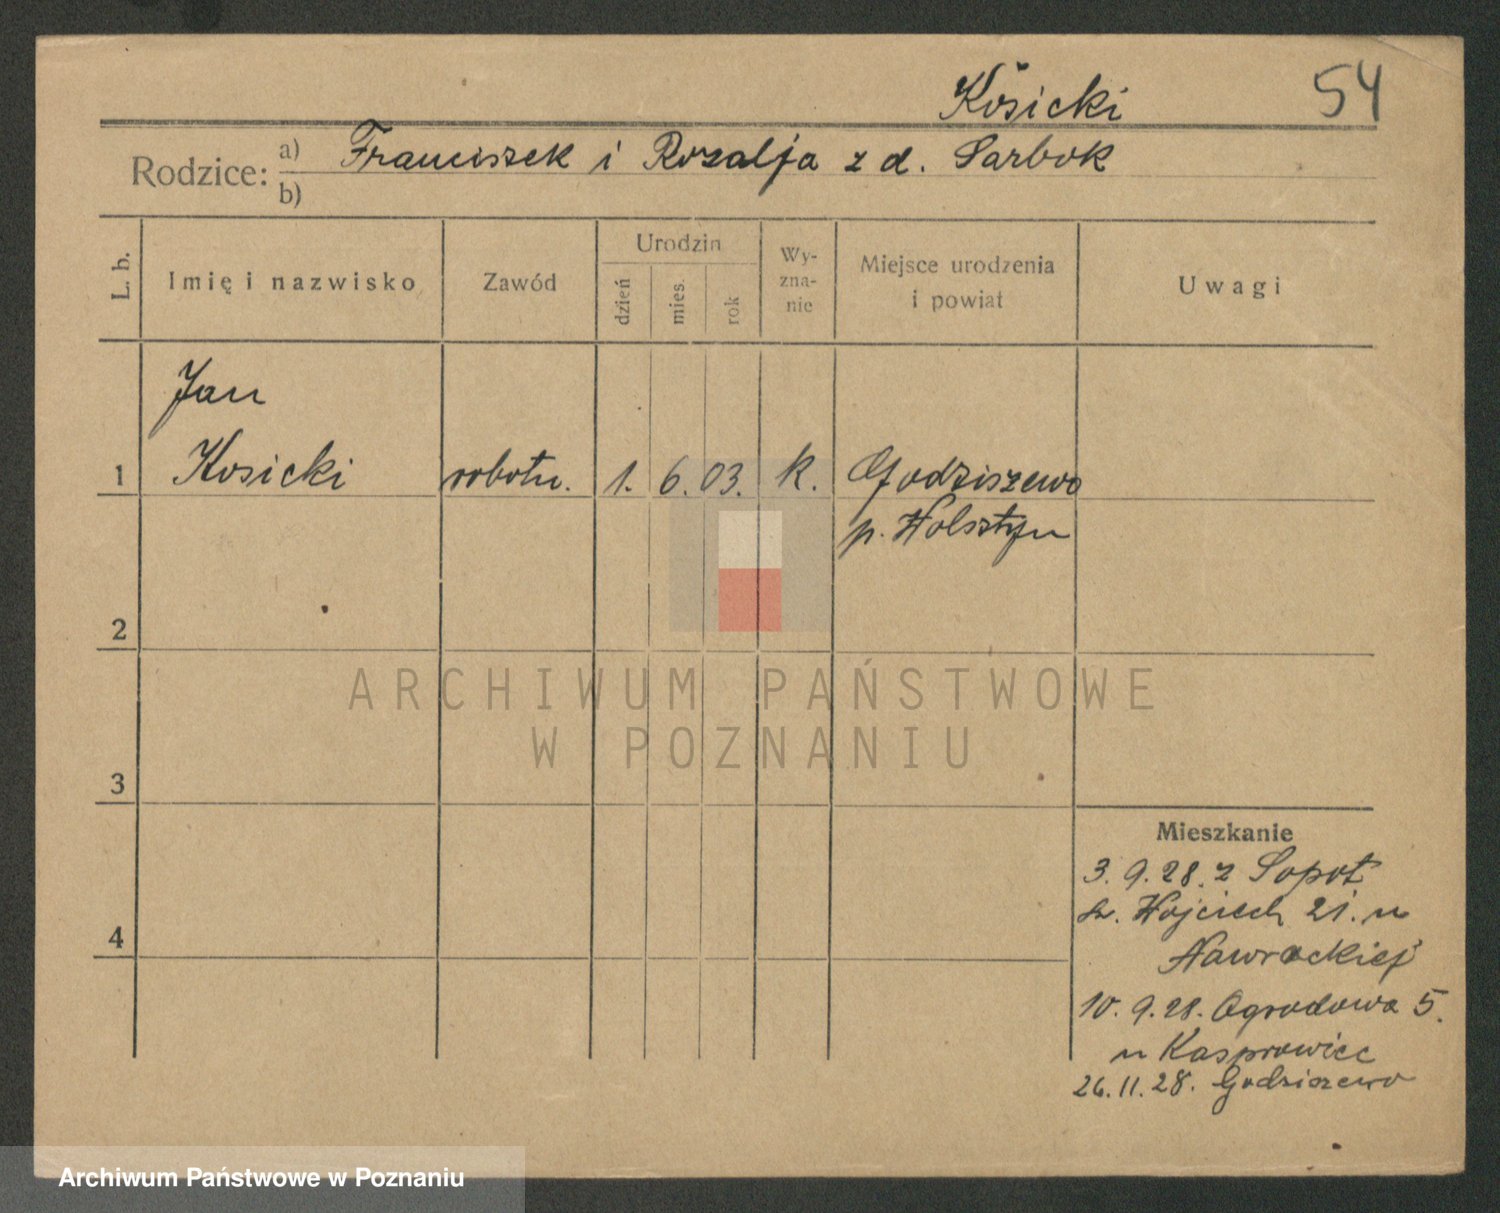 Kosicki 54
Rodzice: a) Franciszek i Rozalja z d. Sarbok
b)
L. b. Imię i nazwisko Zawód Urodzin dzień mies. rok Wy-zna-nie Miejsce urodzenia i powiat Uwagi
Jan
1 Kosicki robotn. 1. 6. 03. k. Godziszewo
p. Holsztyn
2
ARCHIWUM PAŃSTWOWE
W POZNANIU
3
Mieszkanie
3. 9. 28. z Sopot
św. Wojciech 21. u
4
Nawrockiej
10. 9. 28. Ogrodowa 5.
u Kasprowicz
26. 11. 28. Godziszewo
Archiwum Państwowe w Poznaniu